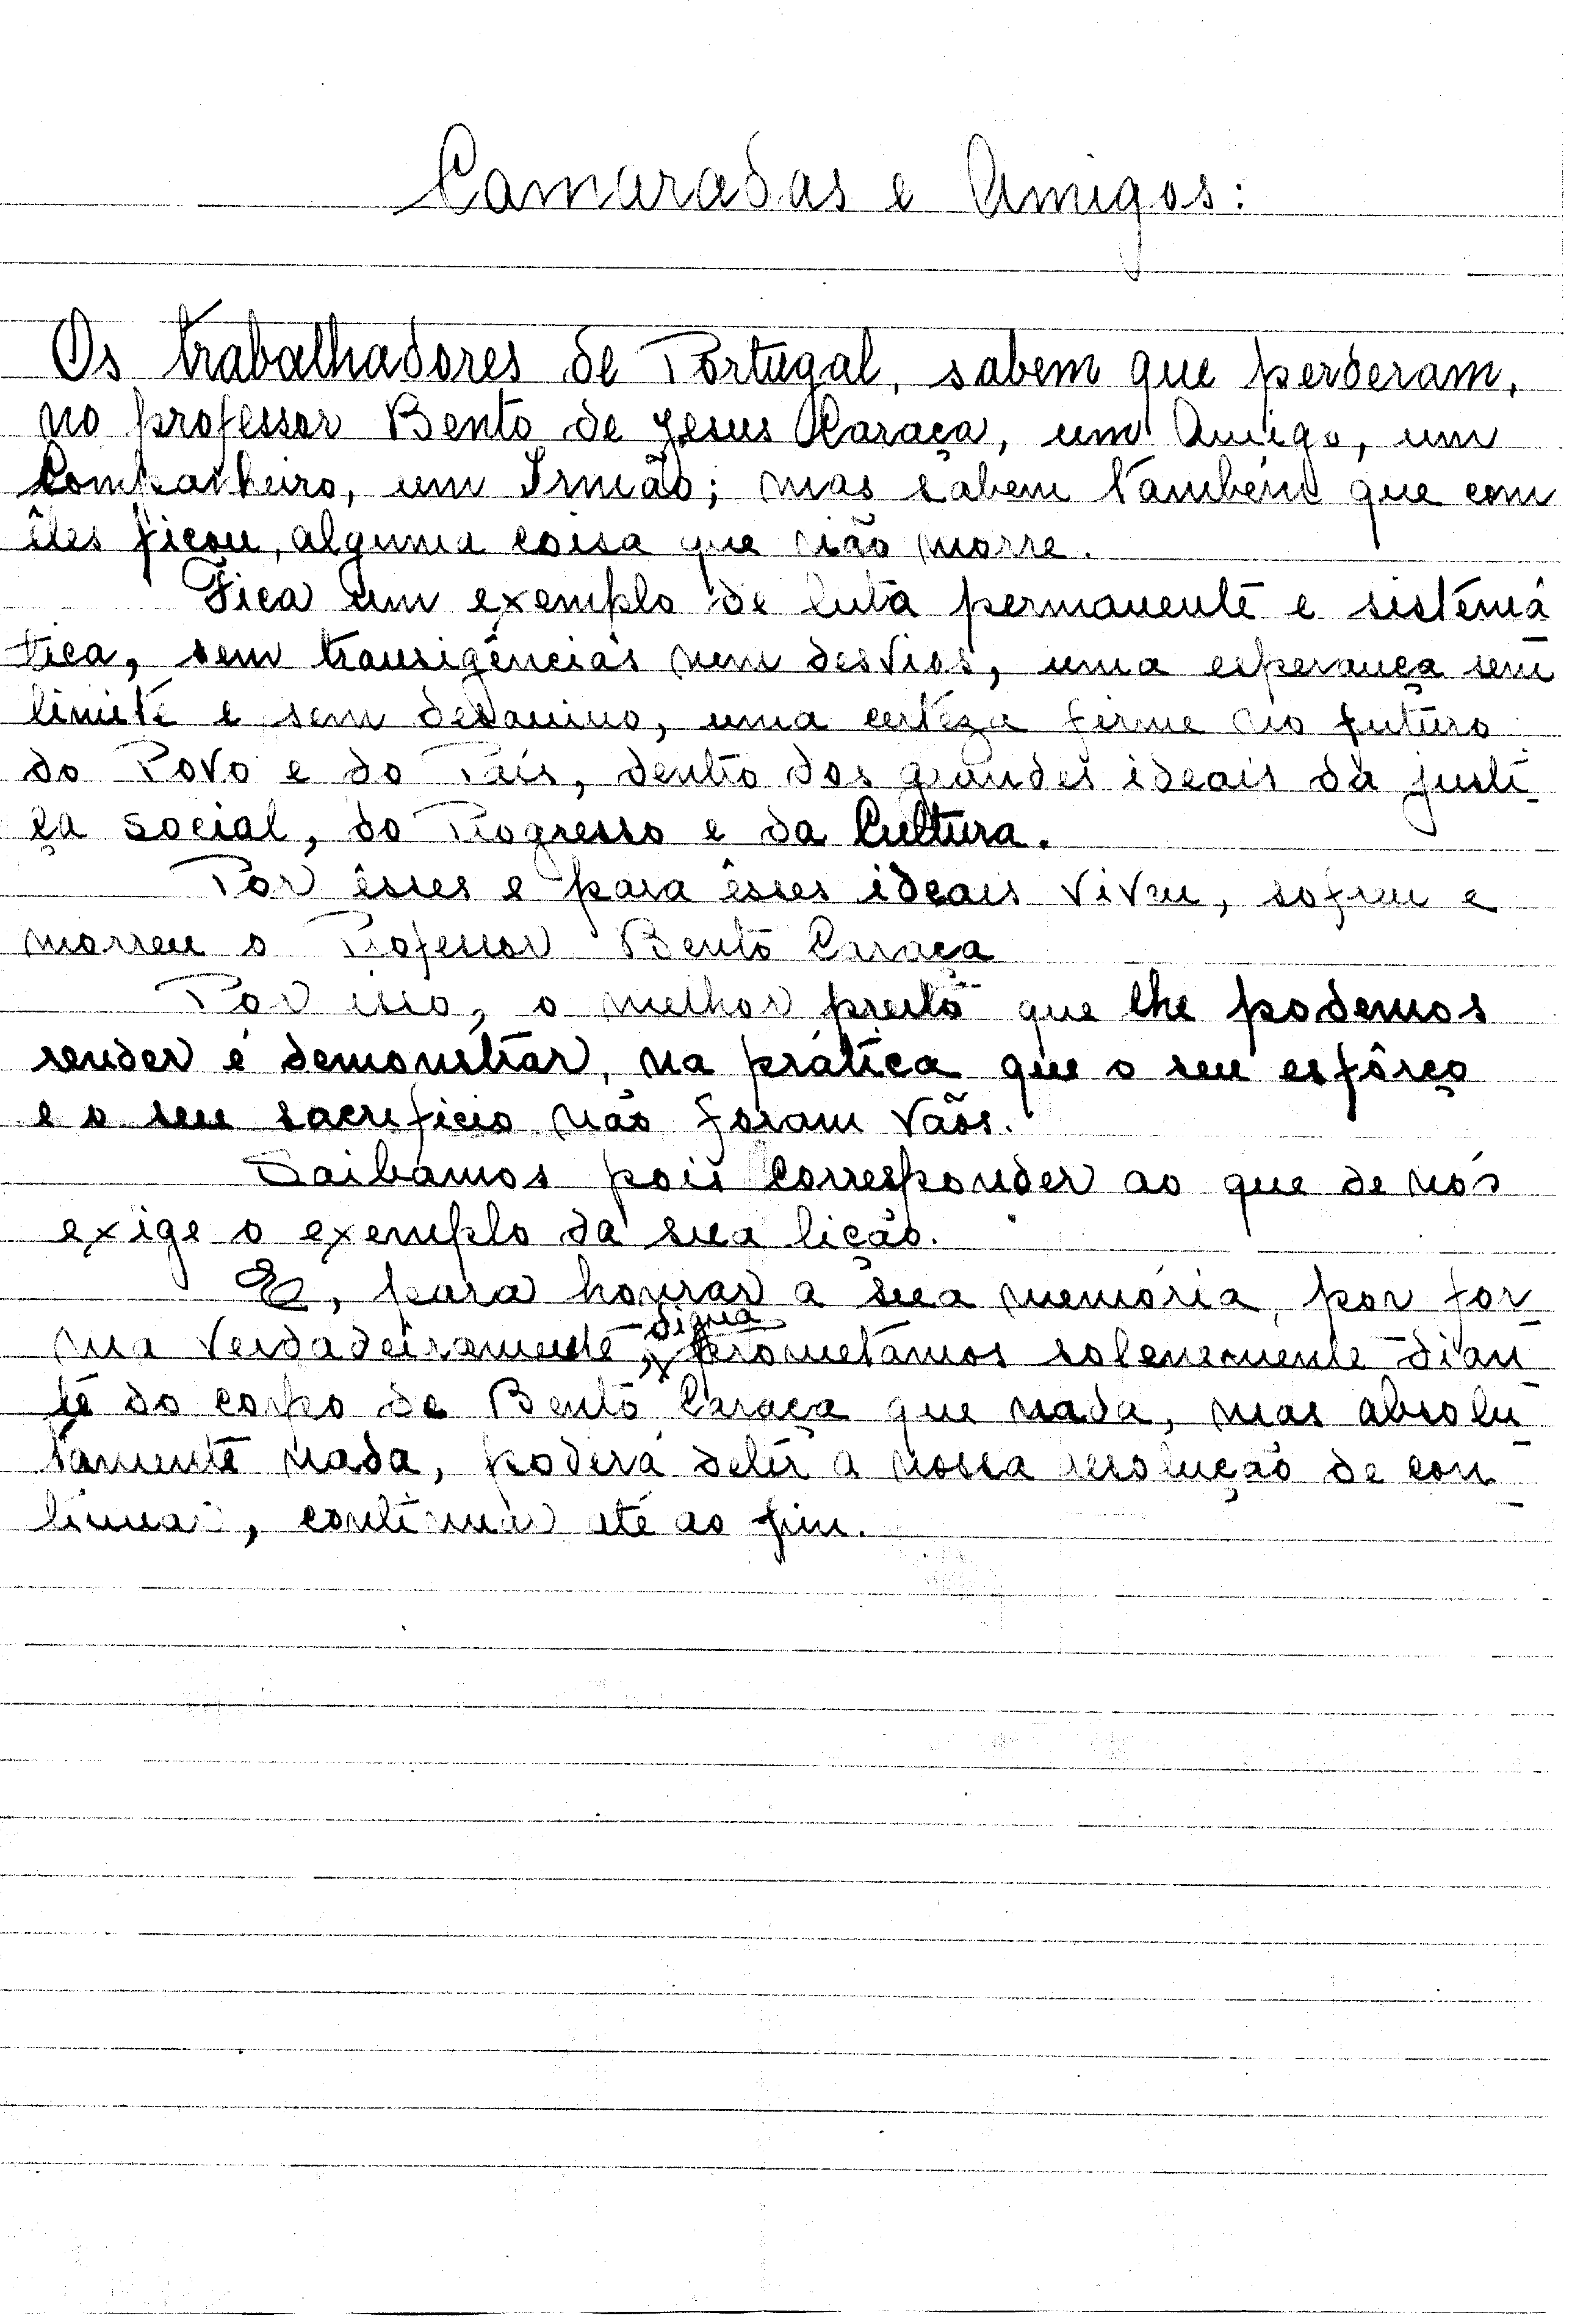 Camaradas e Amigos:
Os trabalhadores de Portugal, sabem que perderam,
no professor Bento de Jesus Caraça, um Amigo, um
Companheiro, um Irmão; mas sabem também que com
êles ficou, alguma coisa que não morre.
Fica um exemplo de luta permanente e sistemá
tica, sem transigências nem desvios, uma esperança sem
limite e sem desanimo, uma certeza firme no futuro
do Povo e do País, dentro dos grandes ideais da justi
ça social, do Progresso e da Cultura.
Por êsses e para êsses ideais viveu, sofreu e
morreu o Professor Bento Caraça
Por isso, o melhor preito que lhe podemos
render é demonstrar, na prática que o seu esfôrço
e o seu sacrificio não foram vãos.
Saibamos pois corresponder ao que de nós
exige o exemplo da sua lição.
E, para honrar a sua memória, por for
digna
ma verdadeiramente, prometamos solenemente dian
te do corpo de Bento Caraça que nada, mas absolu
tamente nada, poderá deter a nossa resolução de con
tinuar, continuar até ao fim.